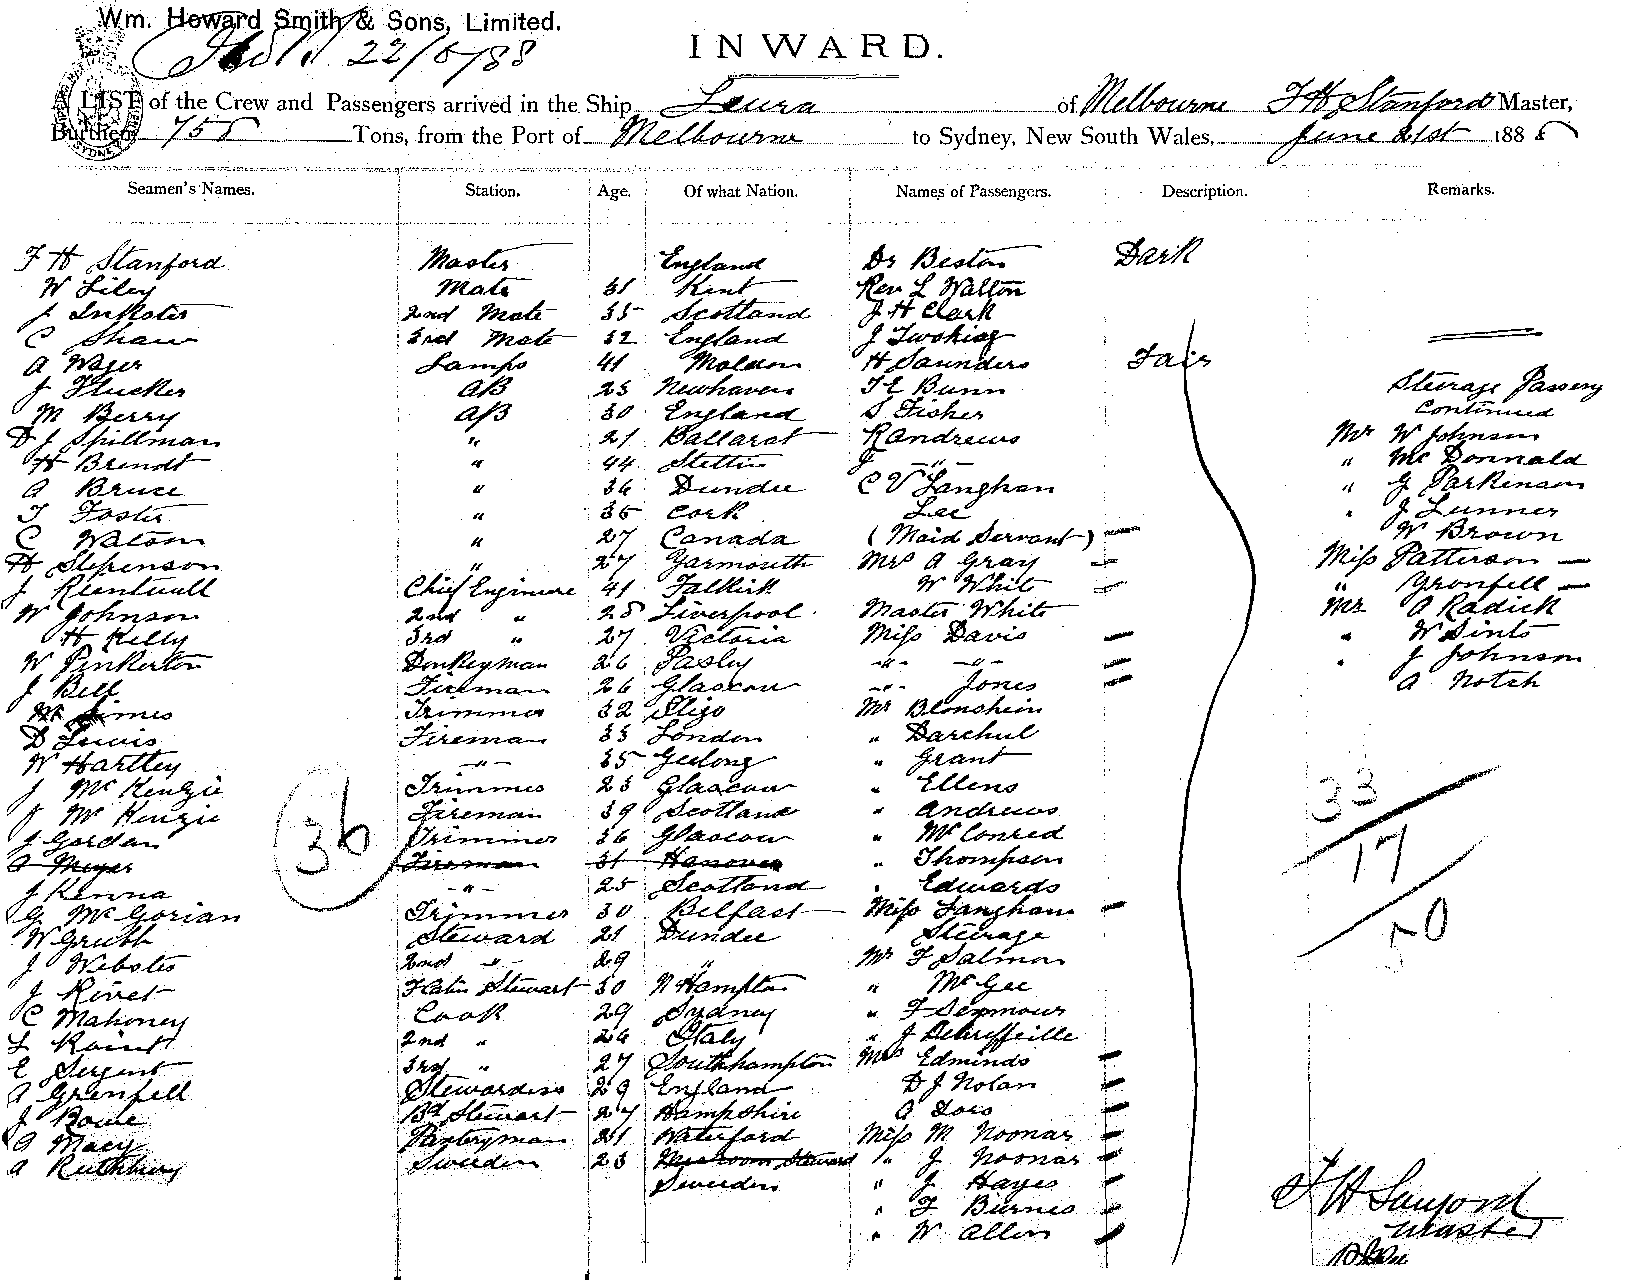 Wm. Howard Smith & Sons, Limited.
22/6/88
INWARD.
LIST of the Crew and Passengers arrived in the Ship Leura of Melbourne F H Stanford Master,
Burthen 755 Tons, from the Port of Melbourne to Sydney, New South Wales, June 21st 1888
Seamen's Names. Station. Age. Of what Nation. Names of Passengers. Description. Remarks.
F H Stanford Master England Dr Beston Dark
W Liley Mate 31 Kent Rev L Walton
J Inkster 2nd Mate 35 Scotland J H Clark
C Shaw 3rd Mate 32 England J
A Wager Lamps 41 Maldon H Saunders Fair
J Flucker AB 23 Newhaven T E Bunn Steerage Passeng
M Berry A/B 30 England S Fisher Continued
D J Spillman " 21 Ballarat R Andrews Mr W Johnson
H Brendt " 44 Stettin J -"- " Mc Donnald
A Bruce " 36 Dundee C V Langhan " G Parkinson
T Foster " 35 Cork Lee " J Lunner
C Watson " 27 Canada (Maid Servant) W Brown
H Stepenson " 27 Yarmouth Mrs A Gray Miss Patterson
J Chief Engineer 41 Falkirk W White " Gronfell
W Johnson 2nd " 28 Liverpool Master White Mr A Radick
H Kelly 3rd " 27 Victoria Miss Davis " W Sints
W Pinkerton Donkeyman 26 Pasley -"- -"- " J Johnson
J Bell Fireman 26 Glascow -"- Jones A Notch
W Simes Trimmer 32 Sligo Mr Blonshein
D Lewis Fireman 33 London " Darchul
W Hartley -"- 35 Geelong " Grant
J McKenzie Trimmer 23 Glascow " Ellens 33
J McKenzie Fireman 39 Scotland " Andrews
J Gordan Trimmer 36 Glascow " McConred
36
A Meyer Fireman 31 Hanover " Thompson 17
J Kenna -"- 25 Scotland " Edwards
G McGorian Trimmer 30 Belfast Miss Langham
W Grubb Steward 21 Dundee Steerage 50
J Webster 2nd " 29 " Mr F Salmon
J Rivret F Cabin Stewart 30 N Hampton " McGee
C Mahoney Cook 29 Sydney " F Seymour
L 2nd " 26 Italy " J
E Sergent 3rd " 27 Southhampton Mrs Edminds
A Grenfell Stewardess 29 England D J Nolan
J Rowe Bd Stewart 27 Hampshire A
A Macy Pantryman 21 Waterford Miss M Noonan
A Sweeden 23 Messroom Steward " J Noonan
Sweeden " J Hayes
" F Burnes
" W Allen
F H Stanford
Master